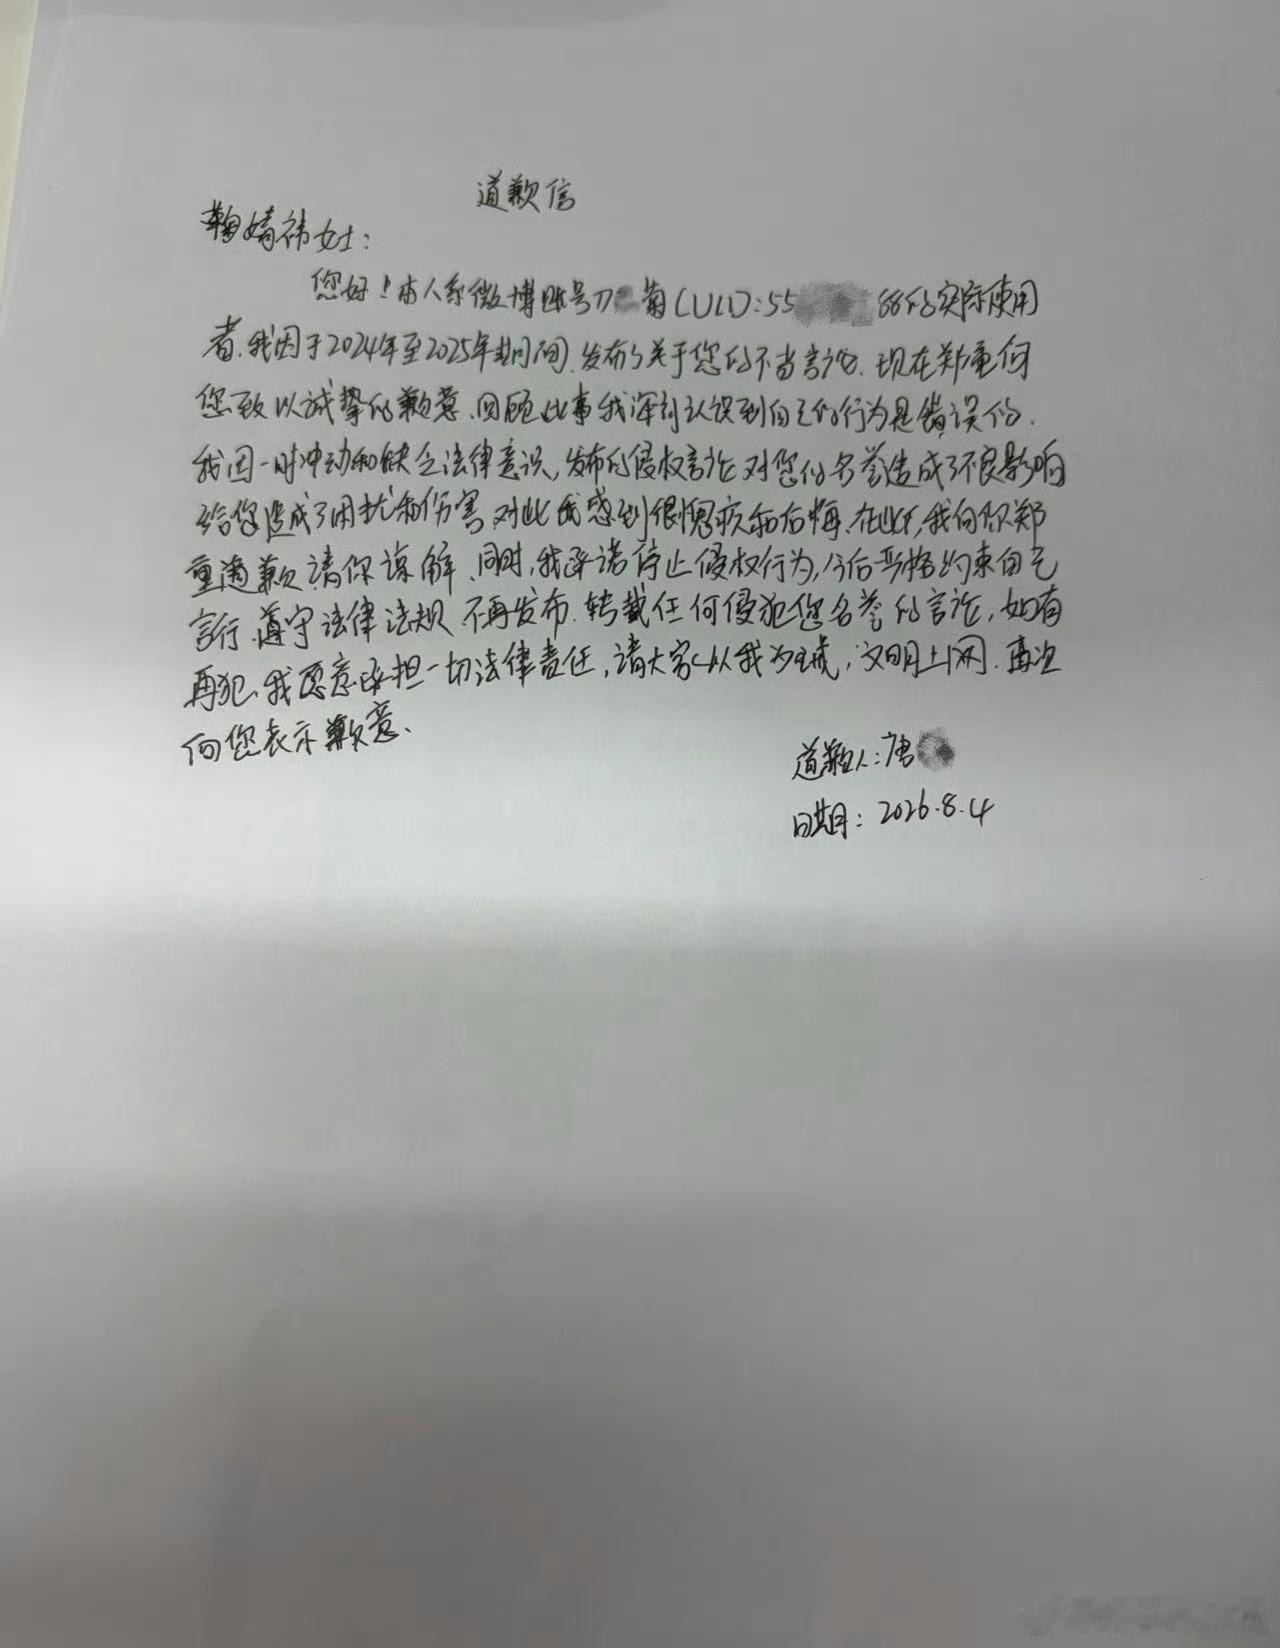 道歉信
鞠婧祎女士：
您好！本人系微博账号刀菊（UID）：55 88的实际使用
者、我因于2024年至2025年期间、发布了关于您的不当言论、现在郑重向
您致以诚挚的歉意、回顾此事我深刻认识到自己的行为是错误的、
我因一时冲动和缺乏法律意识，发布的侵权言论对您的名誉造成了不良影响
给您造成了困扰和伤害、对此我感到很愧疚和后悔、在此，我向你郑
重道歉、请你谅解、同时，我承诺停止侵权行为，今后严格约束自己
言行、遵守法律法规 不再发布、转载任何侵犯您名誉的言论，如有
再犯、我愿意承担一切法律责任，请大家以我为戒，文明上网、再次
向您表示歉意、
道歉人：唐
日期：2026.8.4